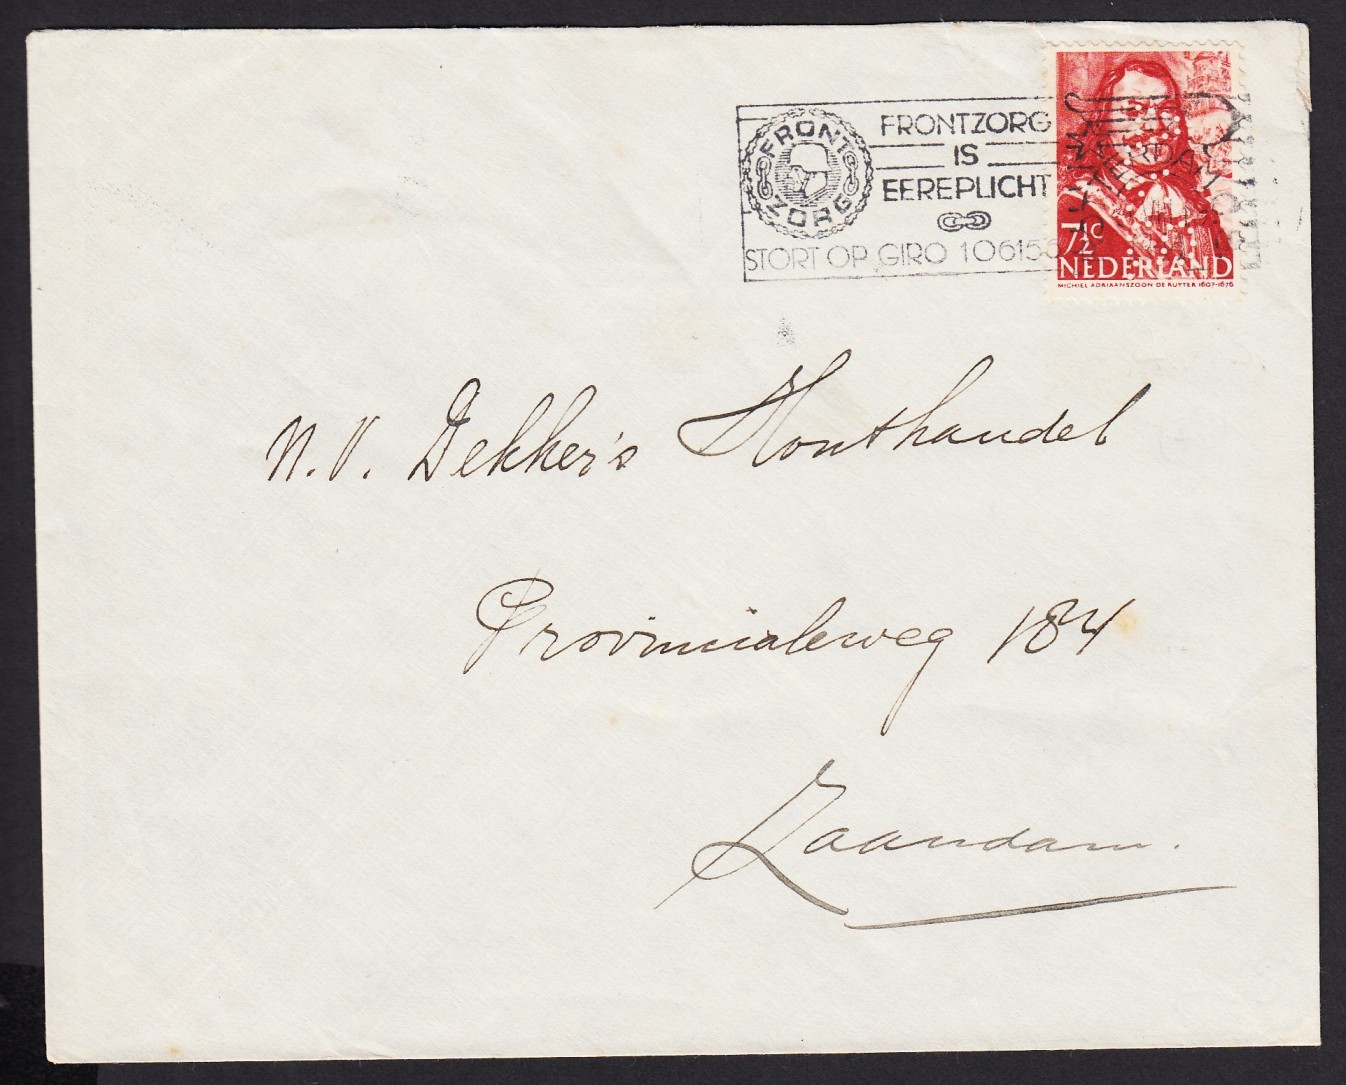 FRONT
ZORG
FRONTZORG
IS
EEREPLICHT
STORT OP GIRO 106155
7½c
NEDERLAND
MICHIEL ADRIAANSZOON DE RUYTER 1607-1676
N.V. Dekker's Houthandel
Provincialeweg 184
Zaandam.